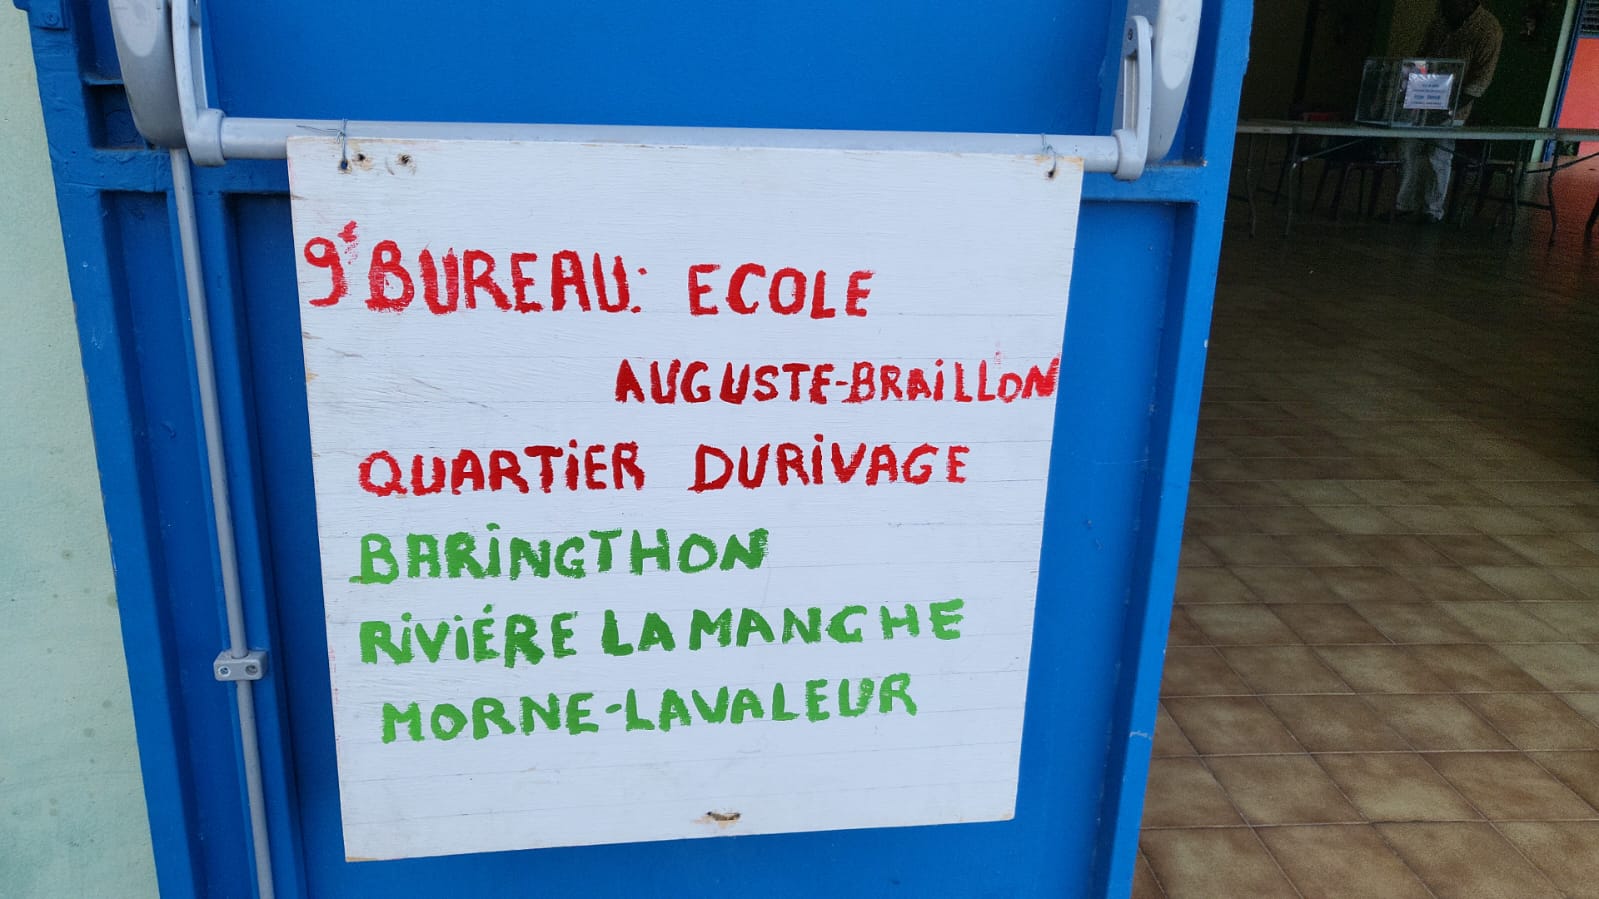 9e BUREAU: ECOLE
AUGUSTE-BRAiLLON
QUARTiER DURiVAGE
BARiNGTHON
RiViÉRE LA MANCHE
MORNE-LAVALEUR